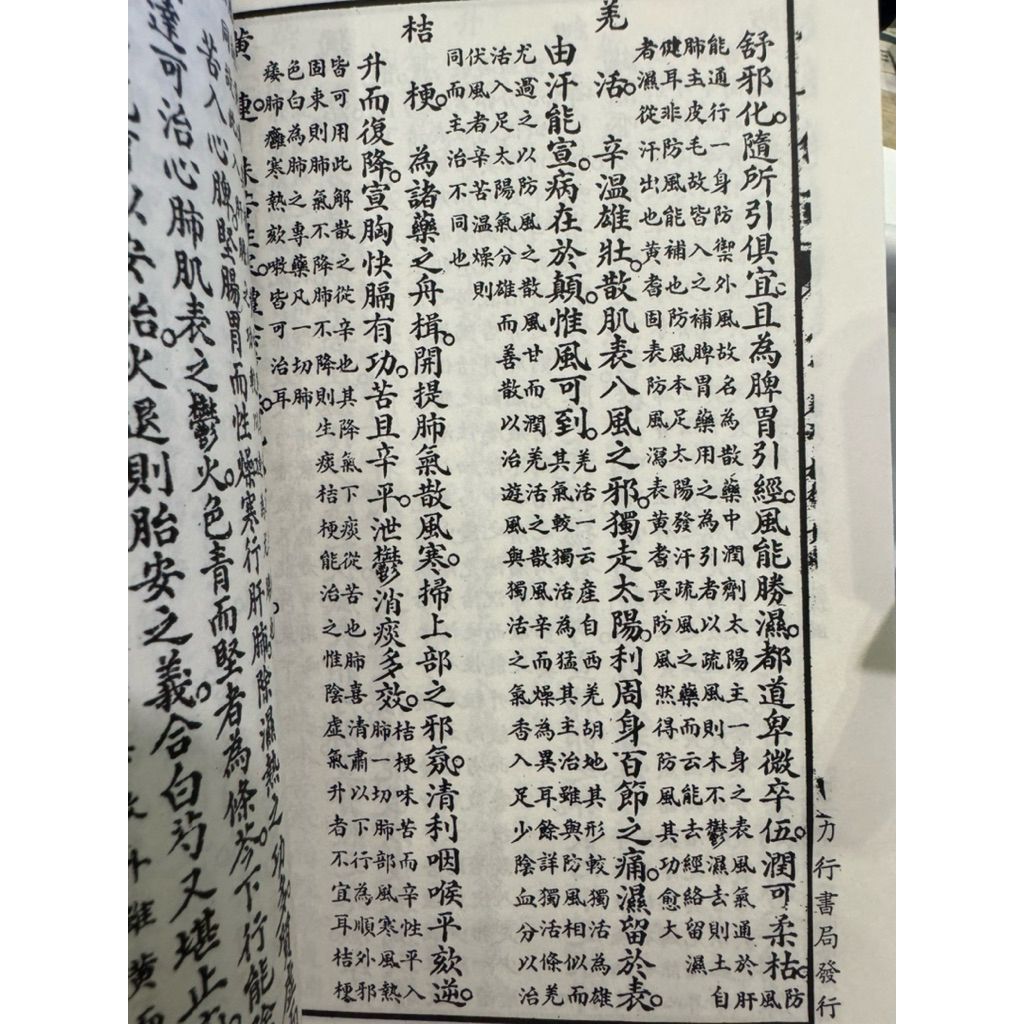 力行書局發行
舒邪化。隨所引俱宜。且為脾胃引經。風能勝濕。都道卑微卒伍。潤可柔枯。防
風
能通行一身防禦外風故名為散藥中潤劑太陽主一身之表風氣通於肝
肺主皮毛故皆入之補脾胃藥用之為引者以疏風則木不鬱濕去則土自
健耳非防風能補也防風本足太陽發汗疏風之藥而云能去經絡留濕
者濕從汗出也黃耆固表防風瀉表黃耆畏防風然得防風其功愈大
羌
活。辛溫雄壯。散肌表八風之邪。獨走太陽。利周身百節之痛。濕留於表。
由汗能宣。病在於顛。惟風可到。
羌活一云產自西羌胡地其形較獨活為雄
其氣較獨活為猛其主治雖與防風相似而
尤過之以防風之散風甘而潤羌活之散風辛而燥為異耳餘詳獨活條羌
活入足太陽氣分雄而善散以治遊風與獨活之氣香入足少陰血分以治
伏風者辛苦溫燥則
同而主治不同也
桔
梗。為諸藥之舟楫。開提肺氣散風寒。掃上部之邪氛。清利咽喉平欬逆。
升而復降。宣胸快膈有功。苦且辛平。泄鬱消痰多效。
桔梗味苦而辛性平入
肺一切肺部風寒風熱
皆可用此解散之從辛也其降氣下痰從苦也肺喜清肅以下行為順外邪
固束則肺氣不降肺不降則生痰桔梗能治之惟陰虛氣升者不宜耳桔梗
色白為肺之專藥凡一切肺
痿肺癰寒熱欬嗽皆可治耳
黃
苦入心脾堅腸胃而性燥寒行肝肺除濕熱之功
達可治心肺肌表之鬱火。色青而堅者為條芩下行能
以安治火退則胎安之義。合白芍又堪止